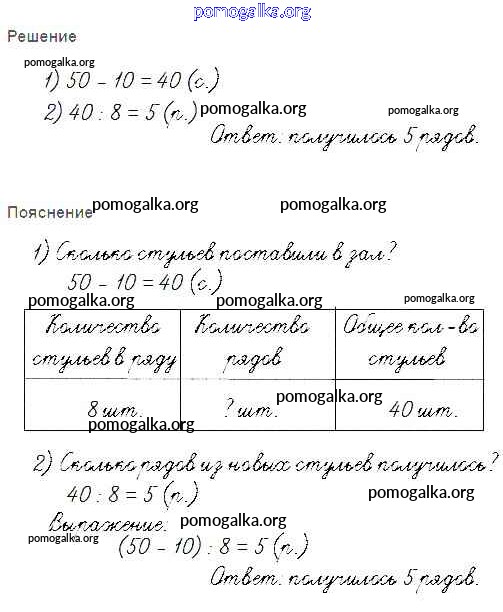 pomogalka.org
Решение
pomogalka.org
1) 50 - 10 = 40 (с.)
2) 40 : 8 = 5 (п.) pomogalka.org pomogalka.org
Ответ: получилось 5 рядов.
Пояснение pomogalka.org pomogalka.org
1) Сколько стульев поставили в зал?
50 - 10 = 40 (с.)
pomogalka.org pomogalka.org pomogalka.org
Количество Количество Общее кол-во
стульев в ряду рядов стульев
pomogalka.org
8 шт. ? шт. 40 шт.
pomogalka.org
2) Сколько рядов из новых стульев получилось?
40 : 8 = 5 (п.) pomogalka.org
Выпажение: pomogalka.org
pomogalka.org (50 - 10) : 8 = 5 (п.)
Ответ: получилось 5 рядов.